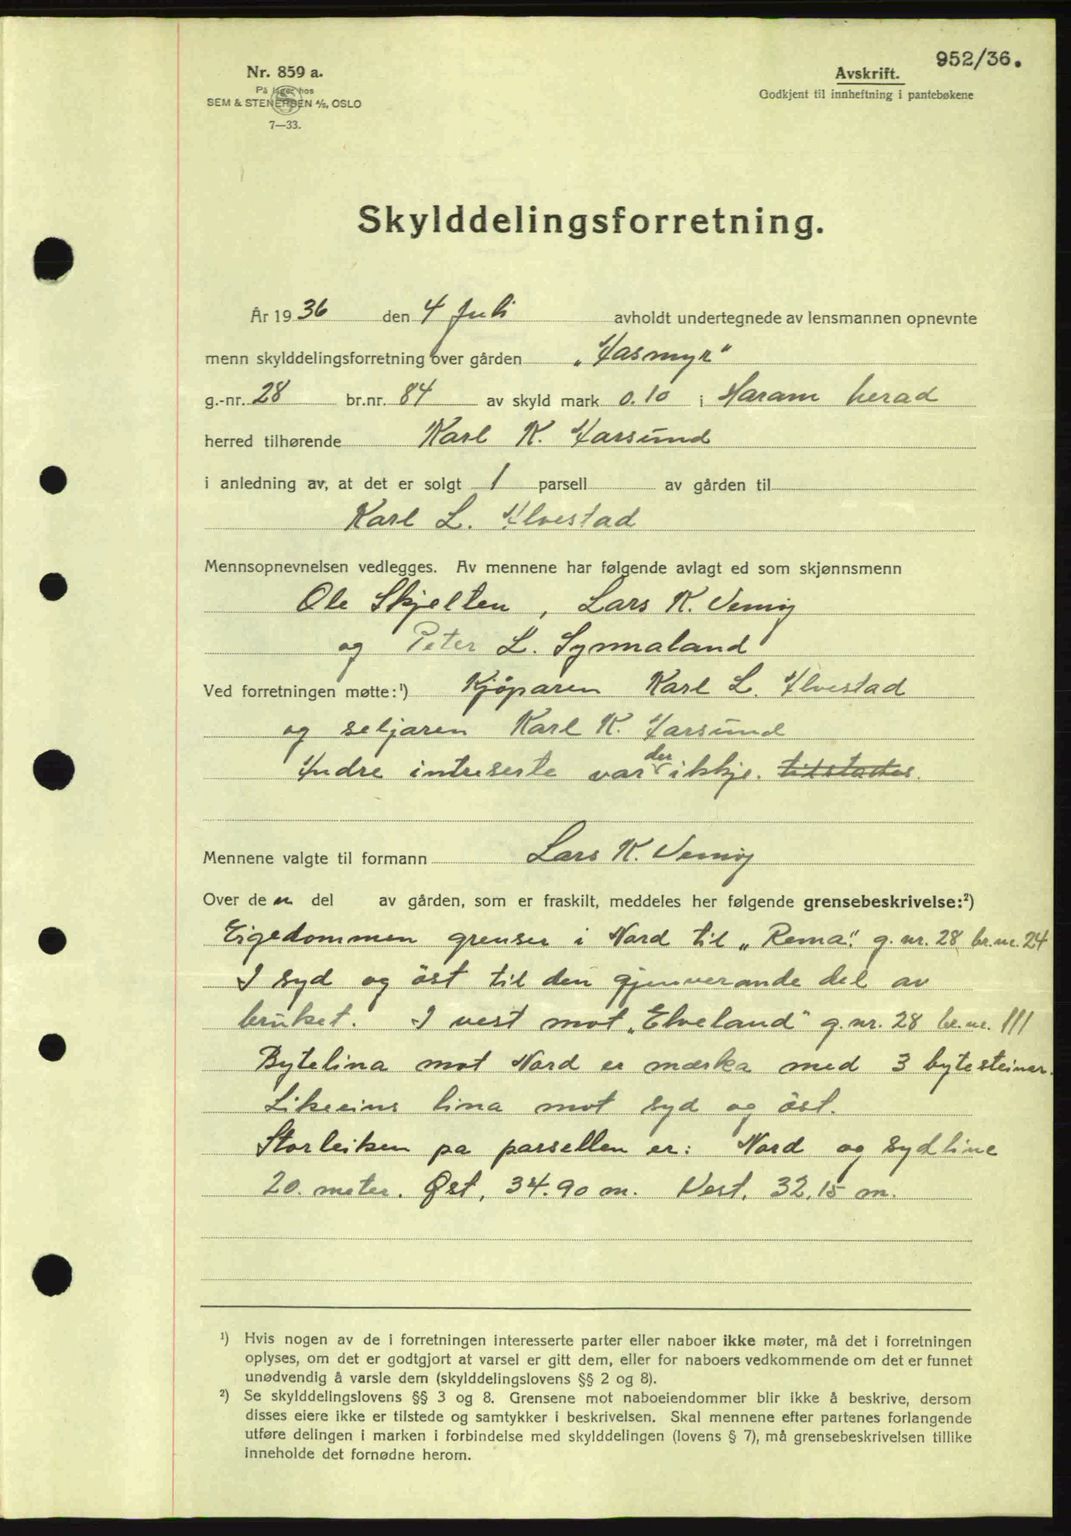 952/36.
Nr. 859 a.
På lager hos
SEM & STENERSEN A/S, OSLO
7—33.
Avskrift.
Godkjent til innheftning i pantebøkene
Skylddelingsforretning.
År 1936 den 4 Juli avholdt undertegnede av lensmannen opnevnte
menn skylddelingsforretning over gården „Aasmyr"
g.-nr. 28 br.nr. 84 av skyld mark 0.10 i Haram herad
herred tilhørende Karl K. Aarsund
i anledning av, at det er solgt 1 parsell av gården til
Karl L. Alvestad
Mennsopnevnelsen vedlegges. Av mennene har følgende avlagt ed som skjønnsmenn
Ole Skjelten, Lars K.
og Peter L. Synnaland
Ved forretningen møtte:¹) Kjøparen Karl L. Alvestad
og seljaren Karl K. Aarsund
Andre intreserte var der ikkje. tilstades.
Mennene valgte til formann Lars K.
Over den del av gården, som er fraskilt, meddeles her følgende grensebeskrivelse:²)
Eigedommen grenser i Nord til „Rema". g.nr. 28 br.nr. 24
I syd og öst til den gjenverande del av
bruket. I vest mot „Elveland" g.nr. 28 br.nr. 111
Bytelina mot Nord er mærka med 3 bytesteinar.
Likeeins lina mot syd og öst.
Storleiken pa parsellen er: Nord og sydline
20. meter. Øst, 34.90 m. Vest, 32,15 m.
¹) Hvis nogen av de i forretningen interesserte parter eller naboer ikke møter, må det i forretningen
oplyses, om det er godtgjort at varsel er gitt dem, eller for naboers vedkommende om det er funnet
unødvendig å varsle dem (skylddelingslovens §§ 2 og 8).
²) Se skylddelingslovens §§ 3 og 8. Grensene mot naboeiendommer blir ikke å beskrive, dersom
disses eiere ikke er tilstede og samtykker i beskrivelsen. Skal mennene efter partenes forlangende
utføre delingen i marken i forbindelse med skylddelingen (lovens § 7), må grensebeskrivelsen tillike
inneholde det fornødne herom.